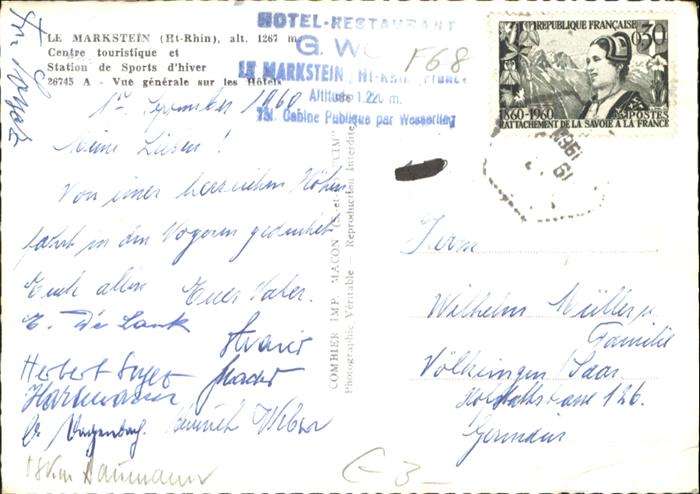 LE MARKSTEIN (Ht-Rhin), alt. 1267 m
Centre touristique et
Station de Sports d'hiver
26745 A - Vue générale sur les Hôtels
HOTEL-RESTAURANT
G. W
LE MARKSTEIN (Ht-Rhin) France
Altitude 1.220 m.
Tél. Cabine Publique par Wesserling
F68
REPUBLIQUE FRANÇAISE
0,30
1860-1960 POSTES
RATTACHEMENT DE LA SAVOIE A LA FRANCE
1er September 1960
Meine Lieben!
Von einer herrlichen Höhen
fahrt in den Vogesen gedenket
Euch allen Euer Vater.
Herbert
Hartmann
Heinrich Weber
Baumann
COMBIER IMP. MACON (S.-et-L.) "CIM"
Photographie Véritable - Reproduction Interdite
Wilhelm Müller u
Familie
Völklingen/Saar
126.
Germanis
€ 3-